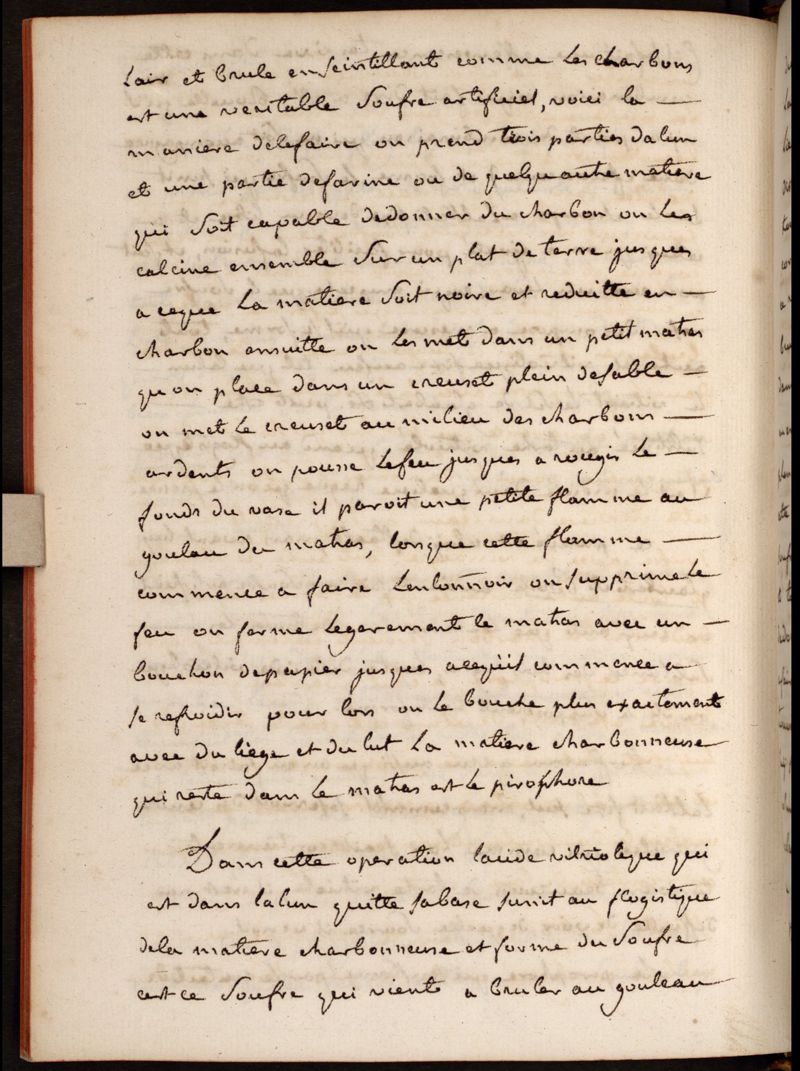 lair et brule en scintillant comme les charbons
est une veritable soufre artificiel, voici la —
maniere delefaire on prend trois parties dalun
et une partie defarine ou de quelquautre matiere
qui soit capable dedonner du charbon on les
calcine ensemble sur un plat de terre jusques
a ceque la matiere soit noire et reduitte en —
charbon ensuitte on les met dans un petit matras
qu on place dans un creuset plein desable —
on met le creuset au milieu des charbons —
ardents on pousse lefeu jusques a rougir le —
fonds du vase il paroit une petite flamme au
gouleau du matras, lorsque cette flamme —
commence a faire lentonnoir on supprime le
feu on ferme legerement le matras avec un —
bouchon depapier jusques acequil commence a
se refroidir pour lors on le bouche plus exactement
avec du liege et du lut la matiere charbonneuse
qui reste dans le matras est le pirophore
Dans cette operation lacide vitriolique qui
est dans lalun quitte sabase sunit au flogistique
dela matiere charbonneuse et forme du soufre
cest ce soufre qui vient a bruler au gouleau